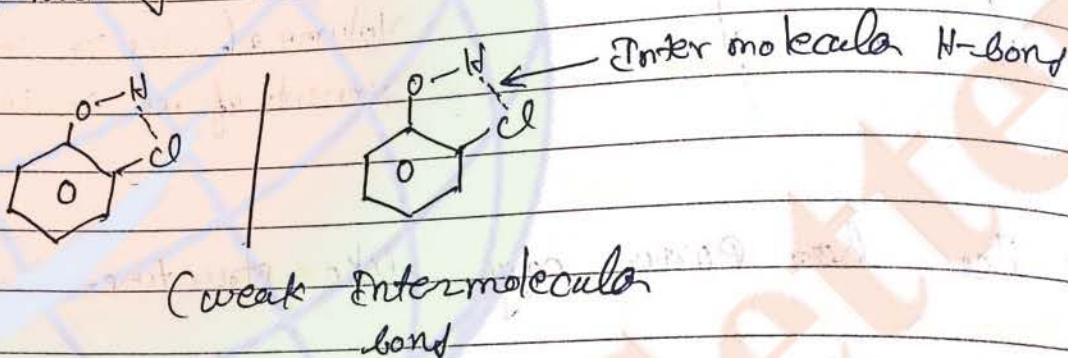 Inter molecula H-bond
O-H
Cl
O
O-H
Cl
O
(weak Intermolecula
bond